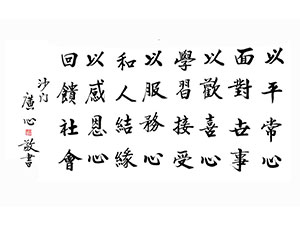 以平常心
面對世事
以歡喜心
學習接受
以服務心
和人結緣
以感恩心
回饋社會
沙門
廣心
敬書